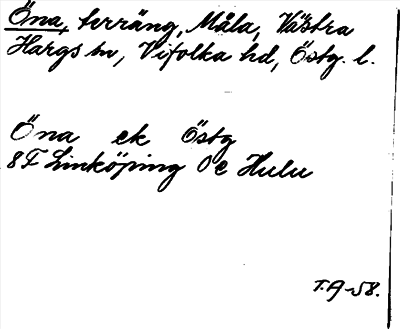 Öna, terräng, Måla, Västra
Hargs sn, Vifolka hd, Östg. l.
Öna ek Östg
8F Linköping 0e Hulu
T.A-58.